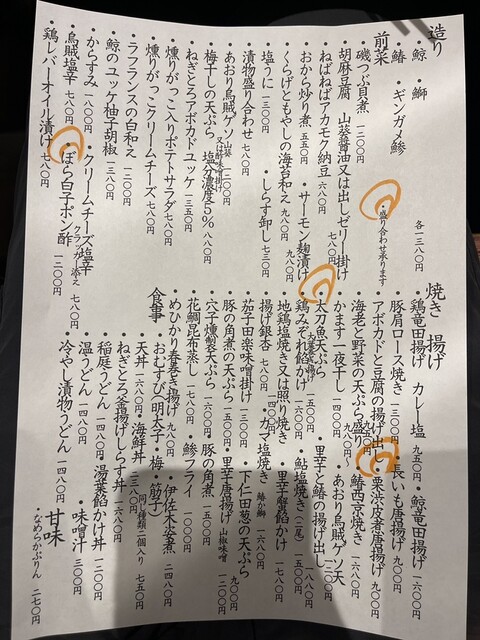 造り
・鯨 ・鰤
・鰆 ・ギンガメ鯵 各一三八〇円
・盛り合わせ承ります
前菜
・磯つぶ貝煮 一二〇〇円
・胡麻豆腐 山葵醤油又は出しゼリー掛け
・ねばねばアカモク納豆 六八〇円
・おから炒り煮 五五〇円 ・サーモン麹漬け 七八〇円
・くらげともやしの海苔和え 九八〇円
・塩うに 一三〇〇円 ・しらす卸し 七三〇円
・漬物盛り合わせ 七八〇円
・あおり烏賊ゲソ 山葵又は酢味噌掛け 一二〇〇円
・梅干しの天ぷら 塩分濃度5% 八八〇円
・ねぎとろアボカドユッケ 一三五〇円
・燻りがっこ入りポテトサラダ 七八〇円
・燻りがっこクリームチーズ 七八〇円
・ラフランスの白和え 一二〇〇円
・鯨のユッケ柚子胡椒 一三八〇円
・からすみ 一八〇〇円 ・クリームチーズ塩辛 クラッカー添え 七八〇円
・烏賊塩辛 七八〇円 ・ぼら白子ポン酢 一三〇〇円
・鶏レバーオイル漬け 七八〇円
焼き 揚げ
・鶏竜田揚げ カレー塩 九五〇円 ・鯨竜田揚げ 一六〇〇円
・豚肩ロース焼き 一三〇〇円 ・長いも唐揚げ 九〇〇円
・アボカドと豆腐の揚げ出し 九五〇円 ・栗渋皮煮唐揚げ 九〇〇円
・海老と野菜の天ぷら盛り 九八〇円〜 ・鰆西京焼き 一六〇〇円
・かます一夜干し 一四八〇円 ・あおり烏賊ゲソ天 一二〇〇円
・太刀魚天ぷら 一五〇〇円 ・里芋と鰆の揚げ出し 一八八〇円
・鶏みぞれ餡かけ 一六〇〇円 ・鮎塩焼き（二尾） 一五〇〇円
・地鶏塩焼き又は照り焼き 一四〇〇円 ・里芋蟹餡かけ 一七八〇円
・揚げ銀杏 七八〇円 ・カマ塩焼き 鰆か鰤 一六八〇円
・茄子田楽味噌掛け 一三〇〇円 ・下仁田葱の天ぷら 九〇〇円
・豚の角煮の天ぷら 一五〇〇円 ・里芋唐揚げ 山椒味噌 一二〇〇円
・穴子燻製天ぷら 一六〇〇円 ・豚の角煮 一五〇〇円
・花鯛昆布蒸し 一七〇〇円 ・鯵フライ 一一〇〇円
・めひかり春巻き揚げ 九八〇円 ・伊佐木姿煮 二四八〇円
食事
・おむすび（明太子・梅・筋子） 同じ種類二個入り 七五〇円
・天丼 一六八〇円 ・海鮮丼 二三八〇円
・ねぎとろ釜揚げしらす丼 一六八〇円
・稲庭うどん 一四八〇円 ・湯葉餡かけ丼 一三〇〇円
・温うどん 一四八〇円 ・味噌汁 三〇〇円
・冷やし漬物うどん 一四八〇円
甘味
・なめらかぷりん 二七〇円